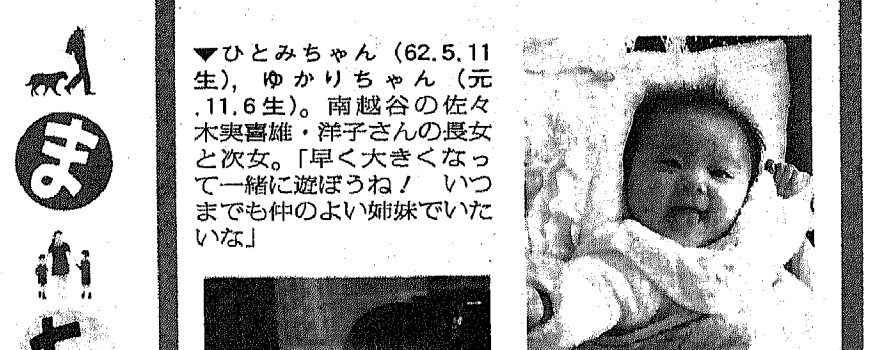 ▼ひとみちゃん（62.5.11
生），ゆかりちゃん（元
.11.6生）。南越谷の佐々
木実喜雄・洋子さんの長女
と次女。「早く大きくなっ
て一緒に遊ぼうね！　いつ
までも仲のよい姉妹でいた
いな」
ま